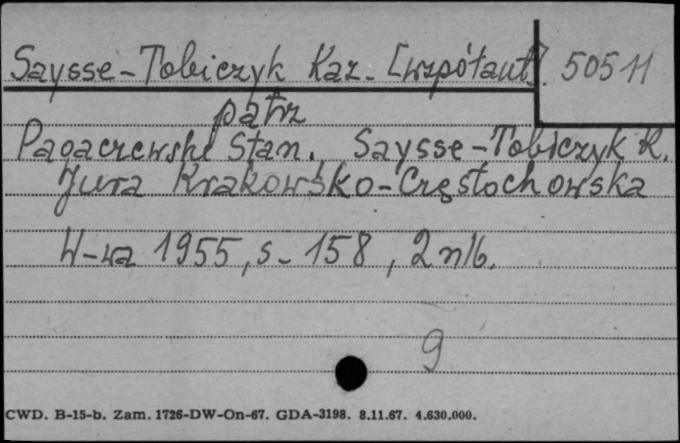 Saysse-Tobiczyk Kaz. [współaut] 50511
patrz
Pagaczewski Stan., Saysse-Tobiczyk K.
Jura Krakowsko-Częstochowska
W-wa 1955, s. 158, 2 nlb.
9
CWD. B-15-b. Zam. 1726-DW-On-67. GDA-3198. 8.11.67. 4.630.000.